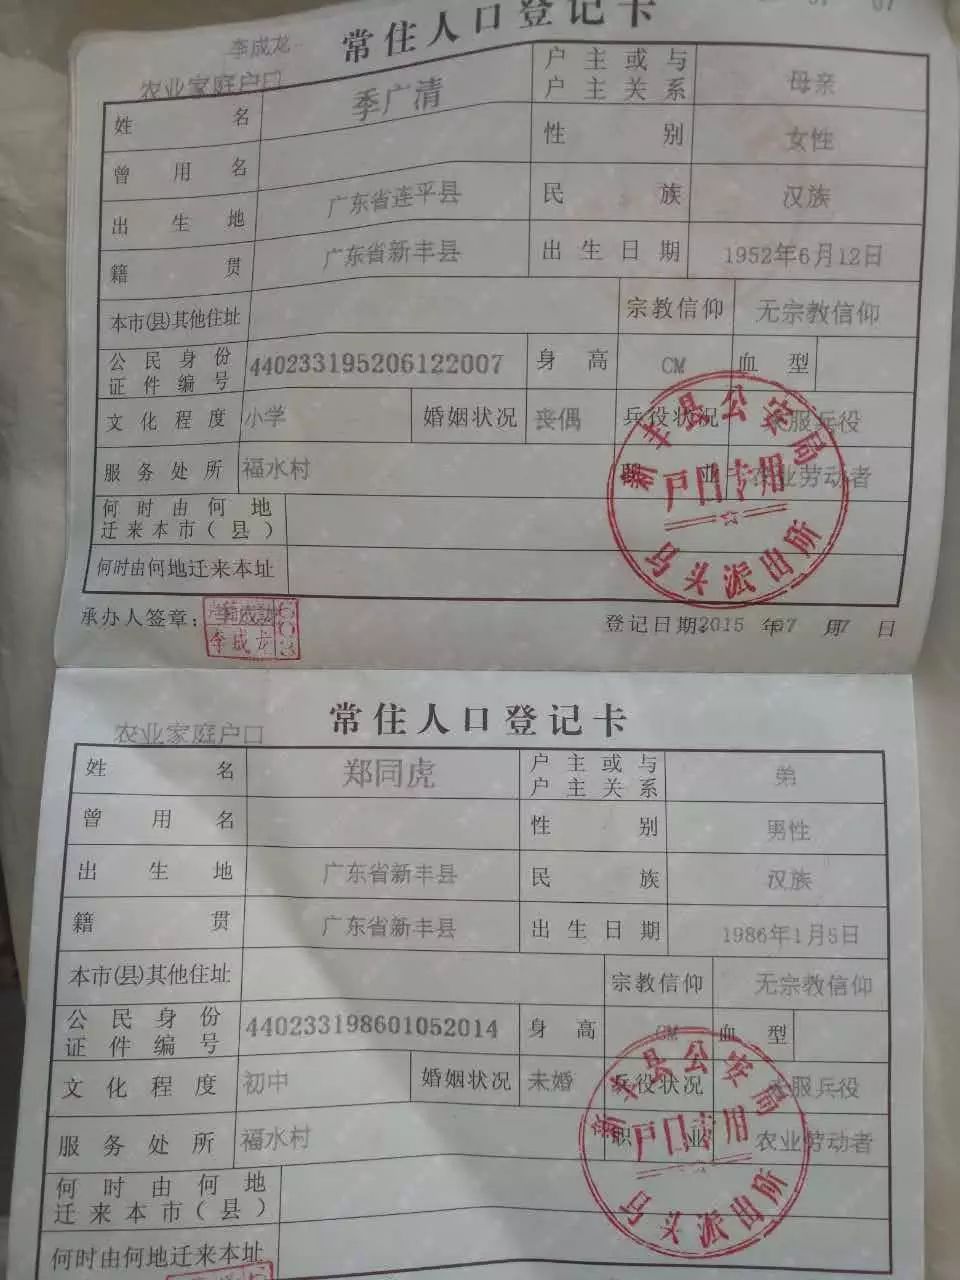 常住人口登记卡
李成龙
农业家庭户口
姓名 季广清 户主或与户主关系 母亲
曾用名 性别 女性
出生地 广东省连平县 民族 汉族
籍贯 广东省新丰县 出生日期 1952年6月12日
本市(县)其他住址 宗教信仰 无宗教信仰
公民身份证件编号 440233195206122007 身高 CM 血型
文化程度 小学 婚姻状况 丧偶 兵役状况 服兵役
服务处所 福水村 职业 农业劳动者
何时由何地迁来本市(县)
何时由何地迁来本址
新丰县公安局
户口专用
马头派出所
承办人签章: 李成龙
登记日期: 2015 年07 月17 日
常住人口登记卡
农业家庭户口
姓名 郑同虎 户主或与户主关系 弟
曾用名 性别 男性
出生地 广东省新丰县 民族 汉族
籍贯 广东省新丰县 出生日期 1986年1月5日
本市(县)其他住址 宗教信仰 无宗教信仰
公民身份证件编号 440233198601052014 身高 CM 血型
文化程度 初中 婚姻状况 未婚 兵役状况 服兵役
服务处所 福水村 职业 农业劳动者
何时由何地迁来本市(县)
何时由何地迁来本址
新丰县公安局
户口专用
马头派出所